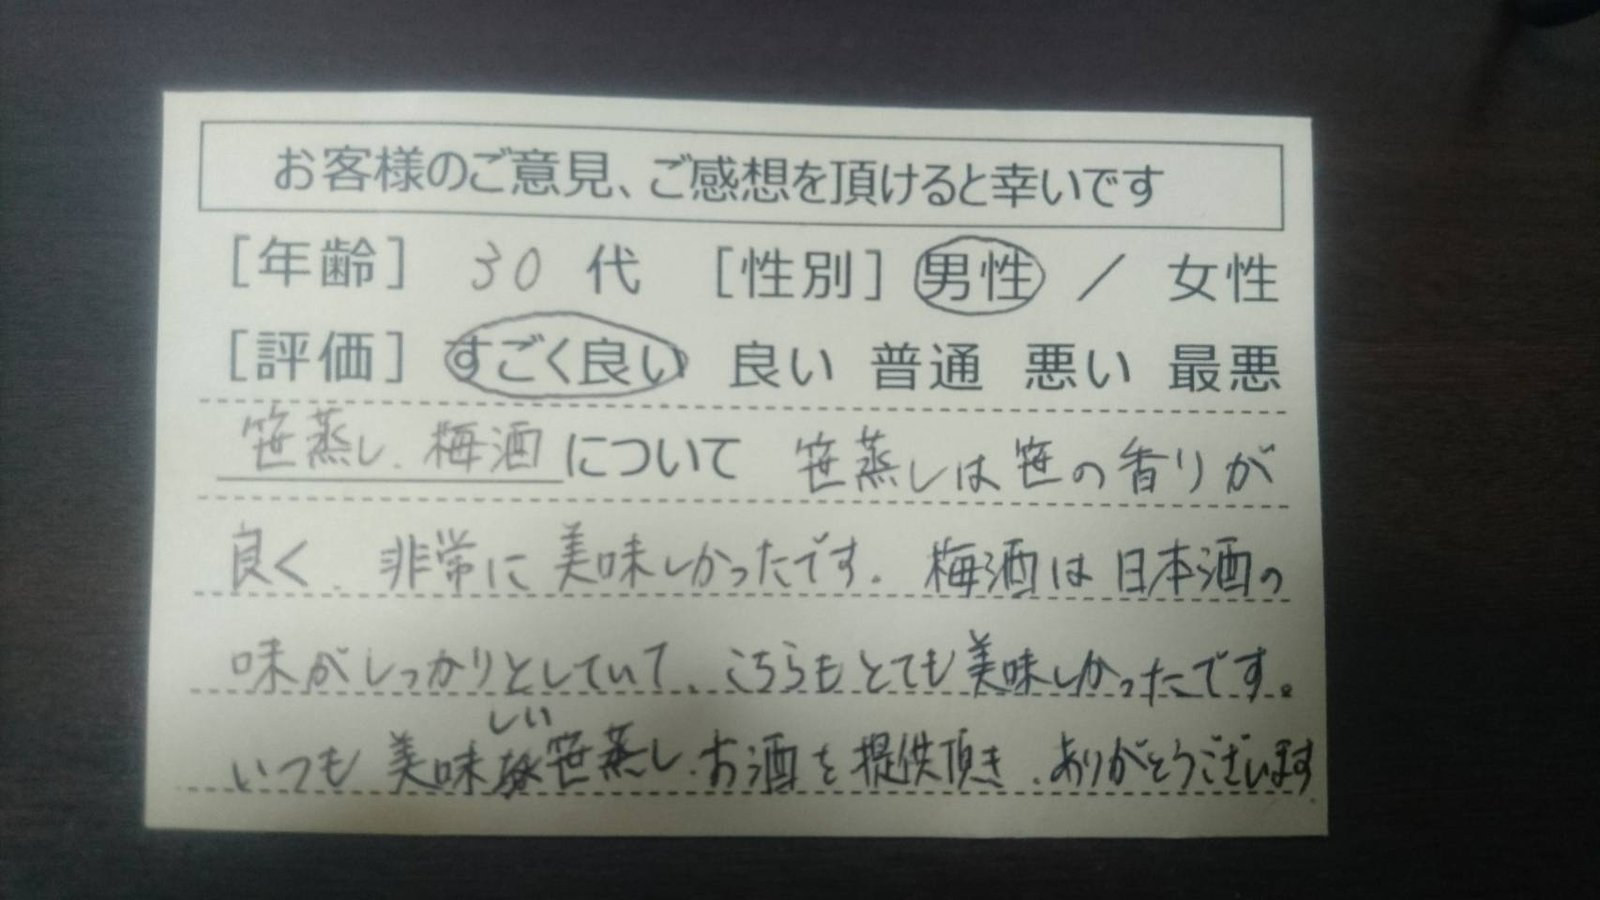 お客様のご意見、ご感想を頂けると幸いです
[年齢] 30 代 [性別] 男性 / 女性
[評価] すごく良い 良い 普通 悪い 最悪
笹蒸し、梅酒について 笹蒸しは笹の香りが
良く、非常に美味しかったです。梅酒は日本酒の
味がしっかりとしていて、こちらもとても美味しかったです。
いつも美味しい笹蒸し、お酒を提供頂き、ありがとうございます